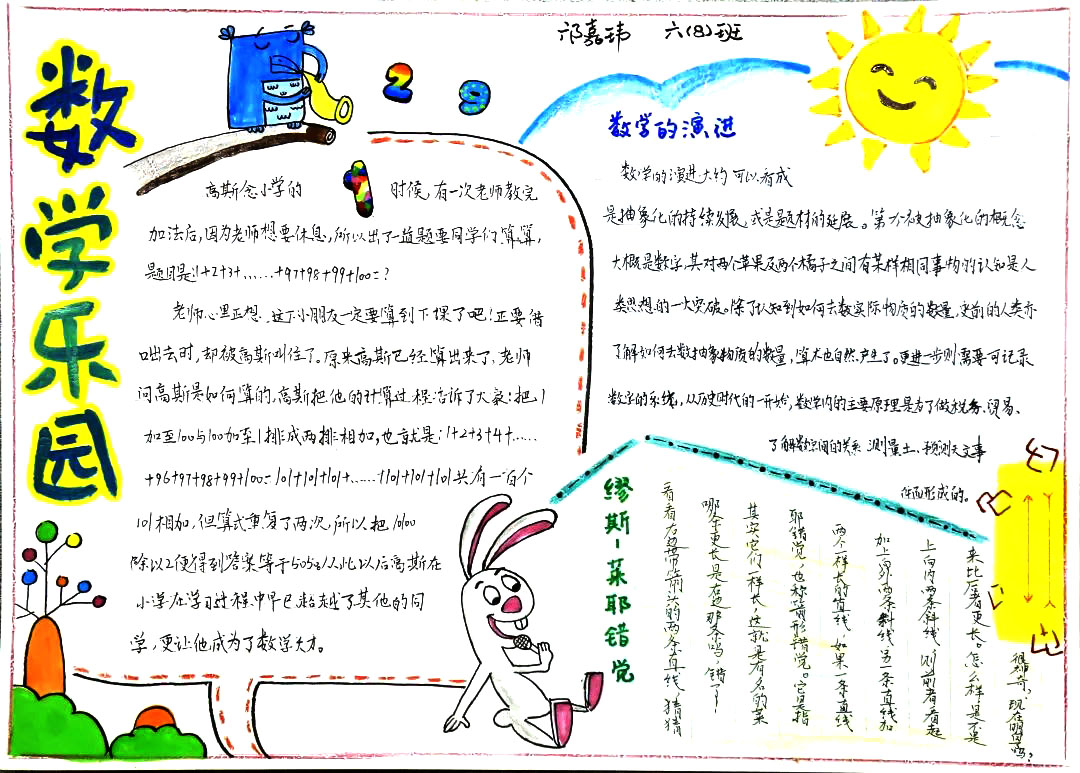 数学乐园
邝嘉玮 六(8)班
2 9
1
高斯念小学的时候,有一次老师教完
加法后,因为老师想要休息,所以出了一道题要同学们算算,
题目是:1+2+3+……+97+98+99+100=?
老师心里正想,这下小朋友一定要算到下课了吧!正要借
口出去时,却被高斯叫住了。原来高斯已经算出来了,老师
问高斯是如何算的,高斯把他的计算过程告诉了大家:把1
加至100与100加至1排成两排相加,也就是:1+2+3+4+……
+96+97+98+99+100=101+101+101+……+101+101+101共有一百个
101相加,但算式重复了两次,所以把10100
除以2便得到答案等于5050从此以后高斯在
小学在学习过程中早已超越了其他的同
学,更让他成为了数学天才。
数学的演进
数学的演进大约可以看成
是抽象化的持续发展,或是题材的延展。第一个被抽象化的概念
大概是数字,其对两个苹果及两个橘子之间有某样相同事物的认知是人
类思想的一大突破。除了认知到如何去数实际物质的数量,史前的人类亦
了解如何去数抽象物质的数量,算术也自然产生了。更进一步则需要可记录
数字的系统,从历史时代的一开始,数学内的主要原理是为了做税务、贸易、
了解数字间的关系 测量土、预测天文事
件而形成的。
缪斯-莱耶错觉
很神奇,现在明白吗?
来比后者更长。怎么样是不是
上向内两条斜线,则前者看起
加上向外两条斜线,另一条直线加
两个一样长的直线,如果一条直线
耶错觉,也称箭形错觉。它是指
其实它们一样长,这就是有名的莱
哪条更长是右边那条吗,错了!
看看右边带箭头的两条直线,猜猜